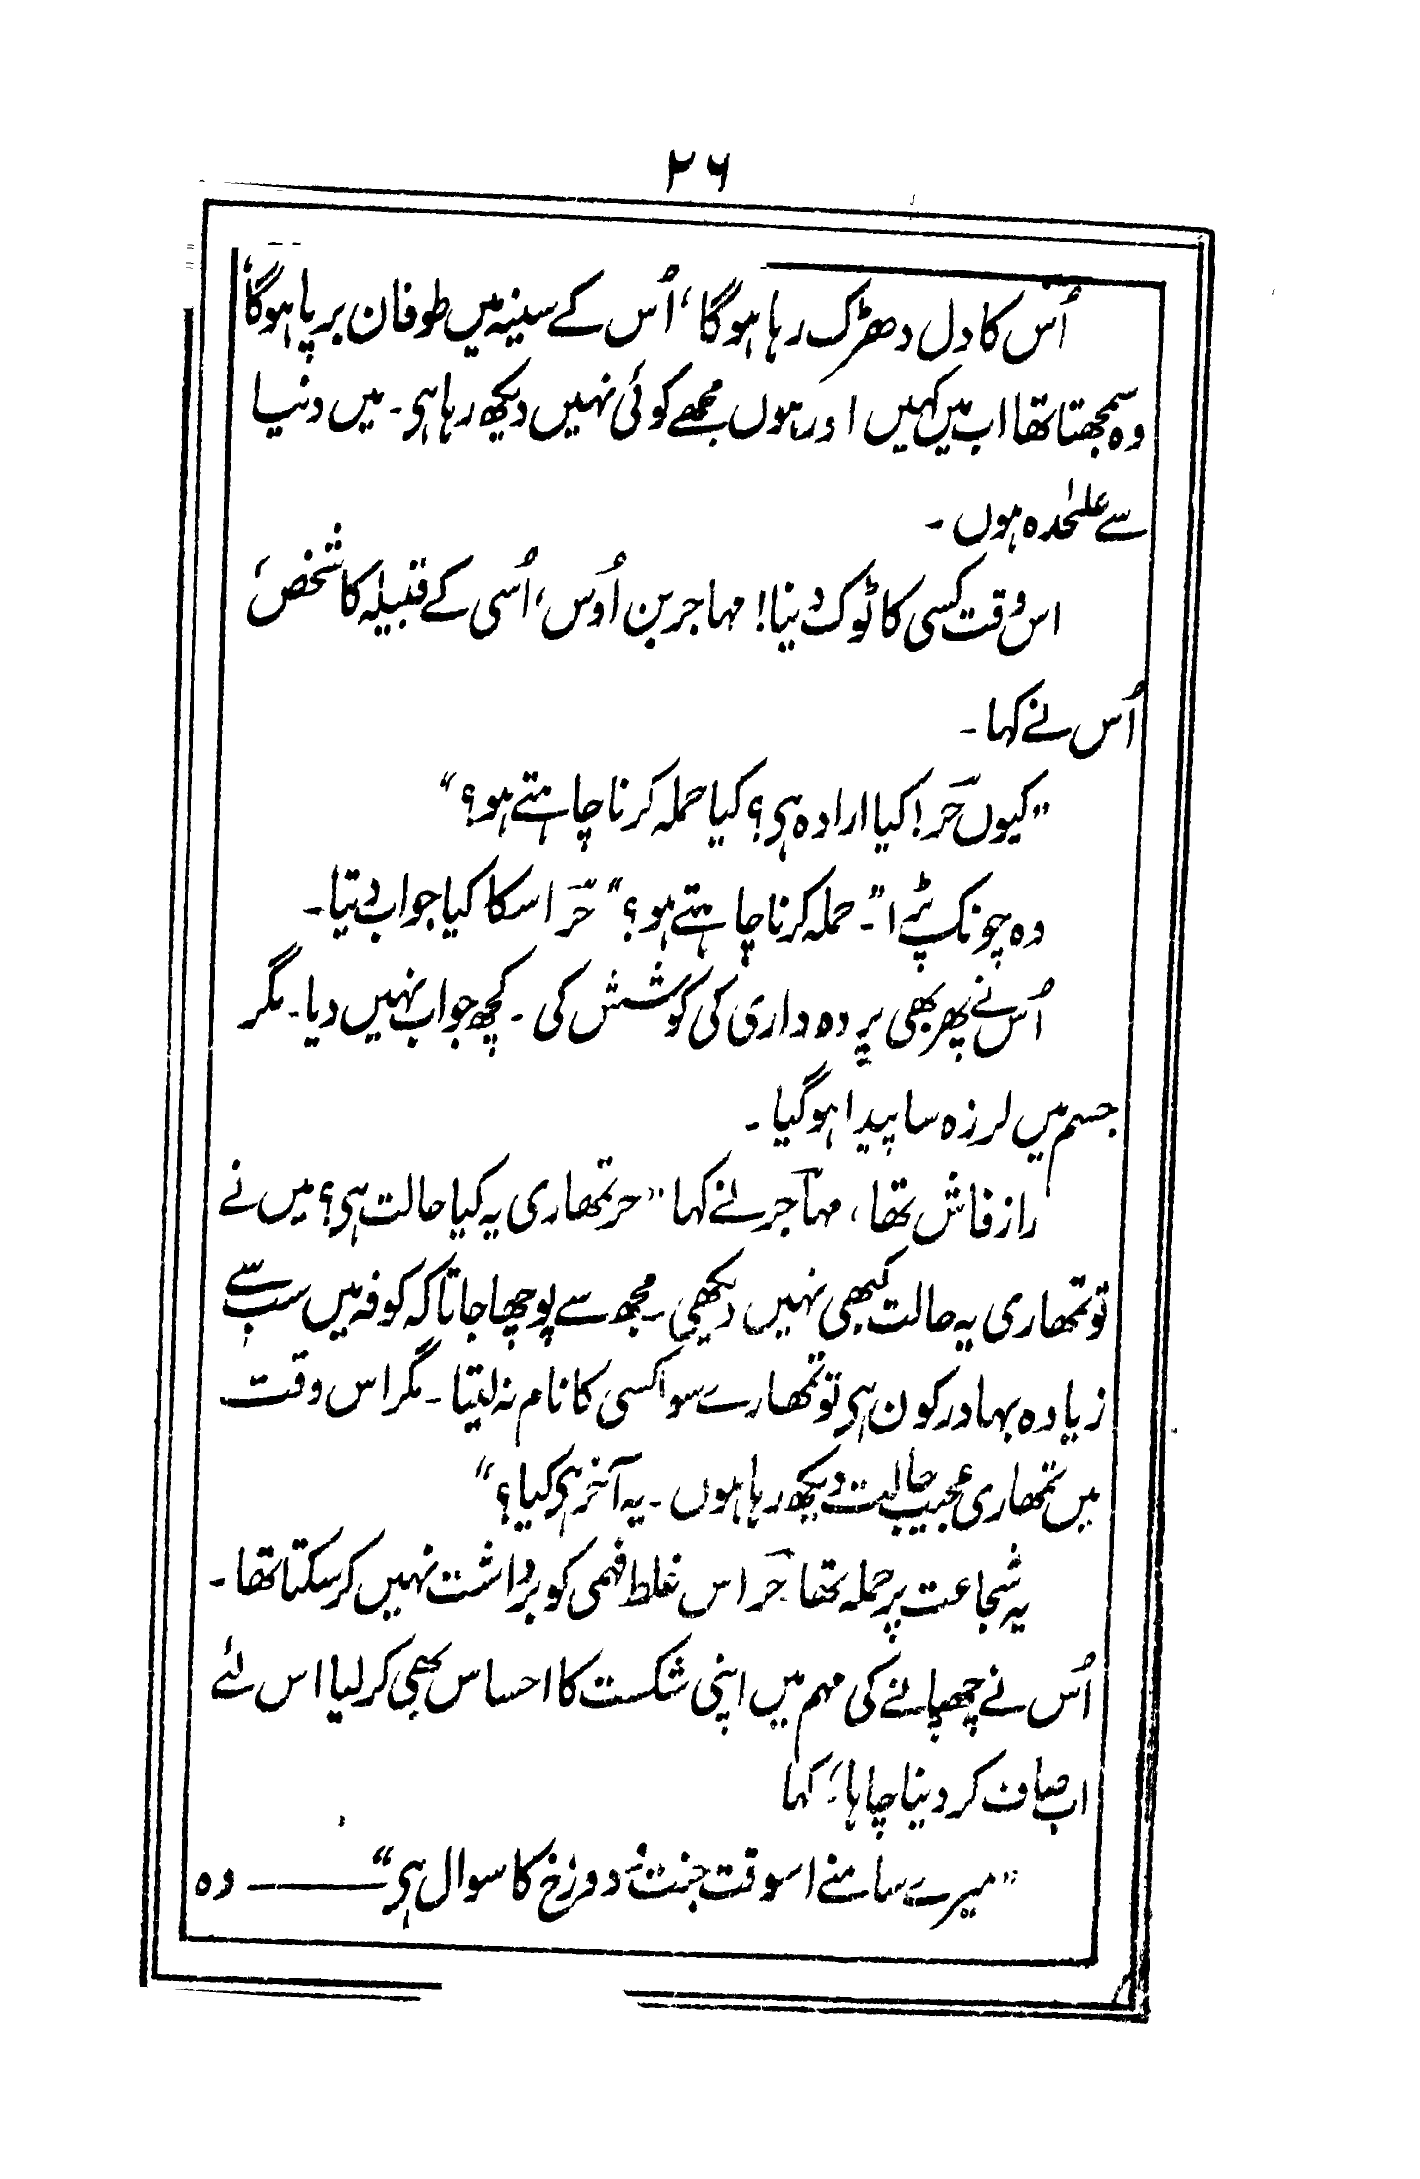 ۲۶
اُس کا دل دھڑک رہا ہوگا، اُس کے سینہ میں طوفان برپا ہوگا،
وہ سمجھتا تھا اب میں کہیں اور ہوں مجھے کوئی نہیں دیکھ رہا ہی۔ میں دنیا
سے علیٰحدہ ہوں۔
اس وقت کسی کا ٹوک دینا! مہاجر بن اَوس، اُسی کے قبیلہ کا شخص،
اُس نے کہا۔
”کیوں حُر! کیا ارادہ ہی؟ کیا حملہ کرنا چاہتے ہو؟“
وہ چونک پڑا ”۔ حملہ کرنا چاہتے ہو؟“ حُر اسکا کیا جواب دیتا۔
اُس نے پھر بھی پردہ داری کی کوشش کی۔ کچھ جواب نہیں دیا۔ مگر
جسم میں لرزہ سا پیدا ہوگیا۔
راز فاش تھا، مہاجر نے کہا ”حر تمھاری یہ کیا حالت ہی؟ میں نے
تو تمھاری یہ حالت کبھی نہیں دیکھی۔ مجھ سے پوچھا جاتا کہ کوفہ میں سب سے
زیادہ بہادر کون ہی تو تمھارے سوا کسی کا نام نہ لیتا۔ مگر اس وقت
میں تمھاری عجیب حالت دیکھ رہا ہوں۔ یہ آخر ہی کیا؟“
یہ شجاعت پر حملہ تھا حُر اس غلط فہمی کو برداشت نہیں کرسکتا تھا۔
اُس نے چھپانے کی مہم میں اپنی شکست کا احساس بھی کرلیا اس لئے
اب صاف کردینا چاہا، کہا
”میرے سامنے اسوقت جنت و دوزخ کا سوال ہی“ ——— وہ